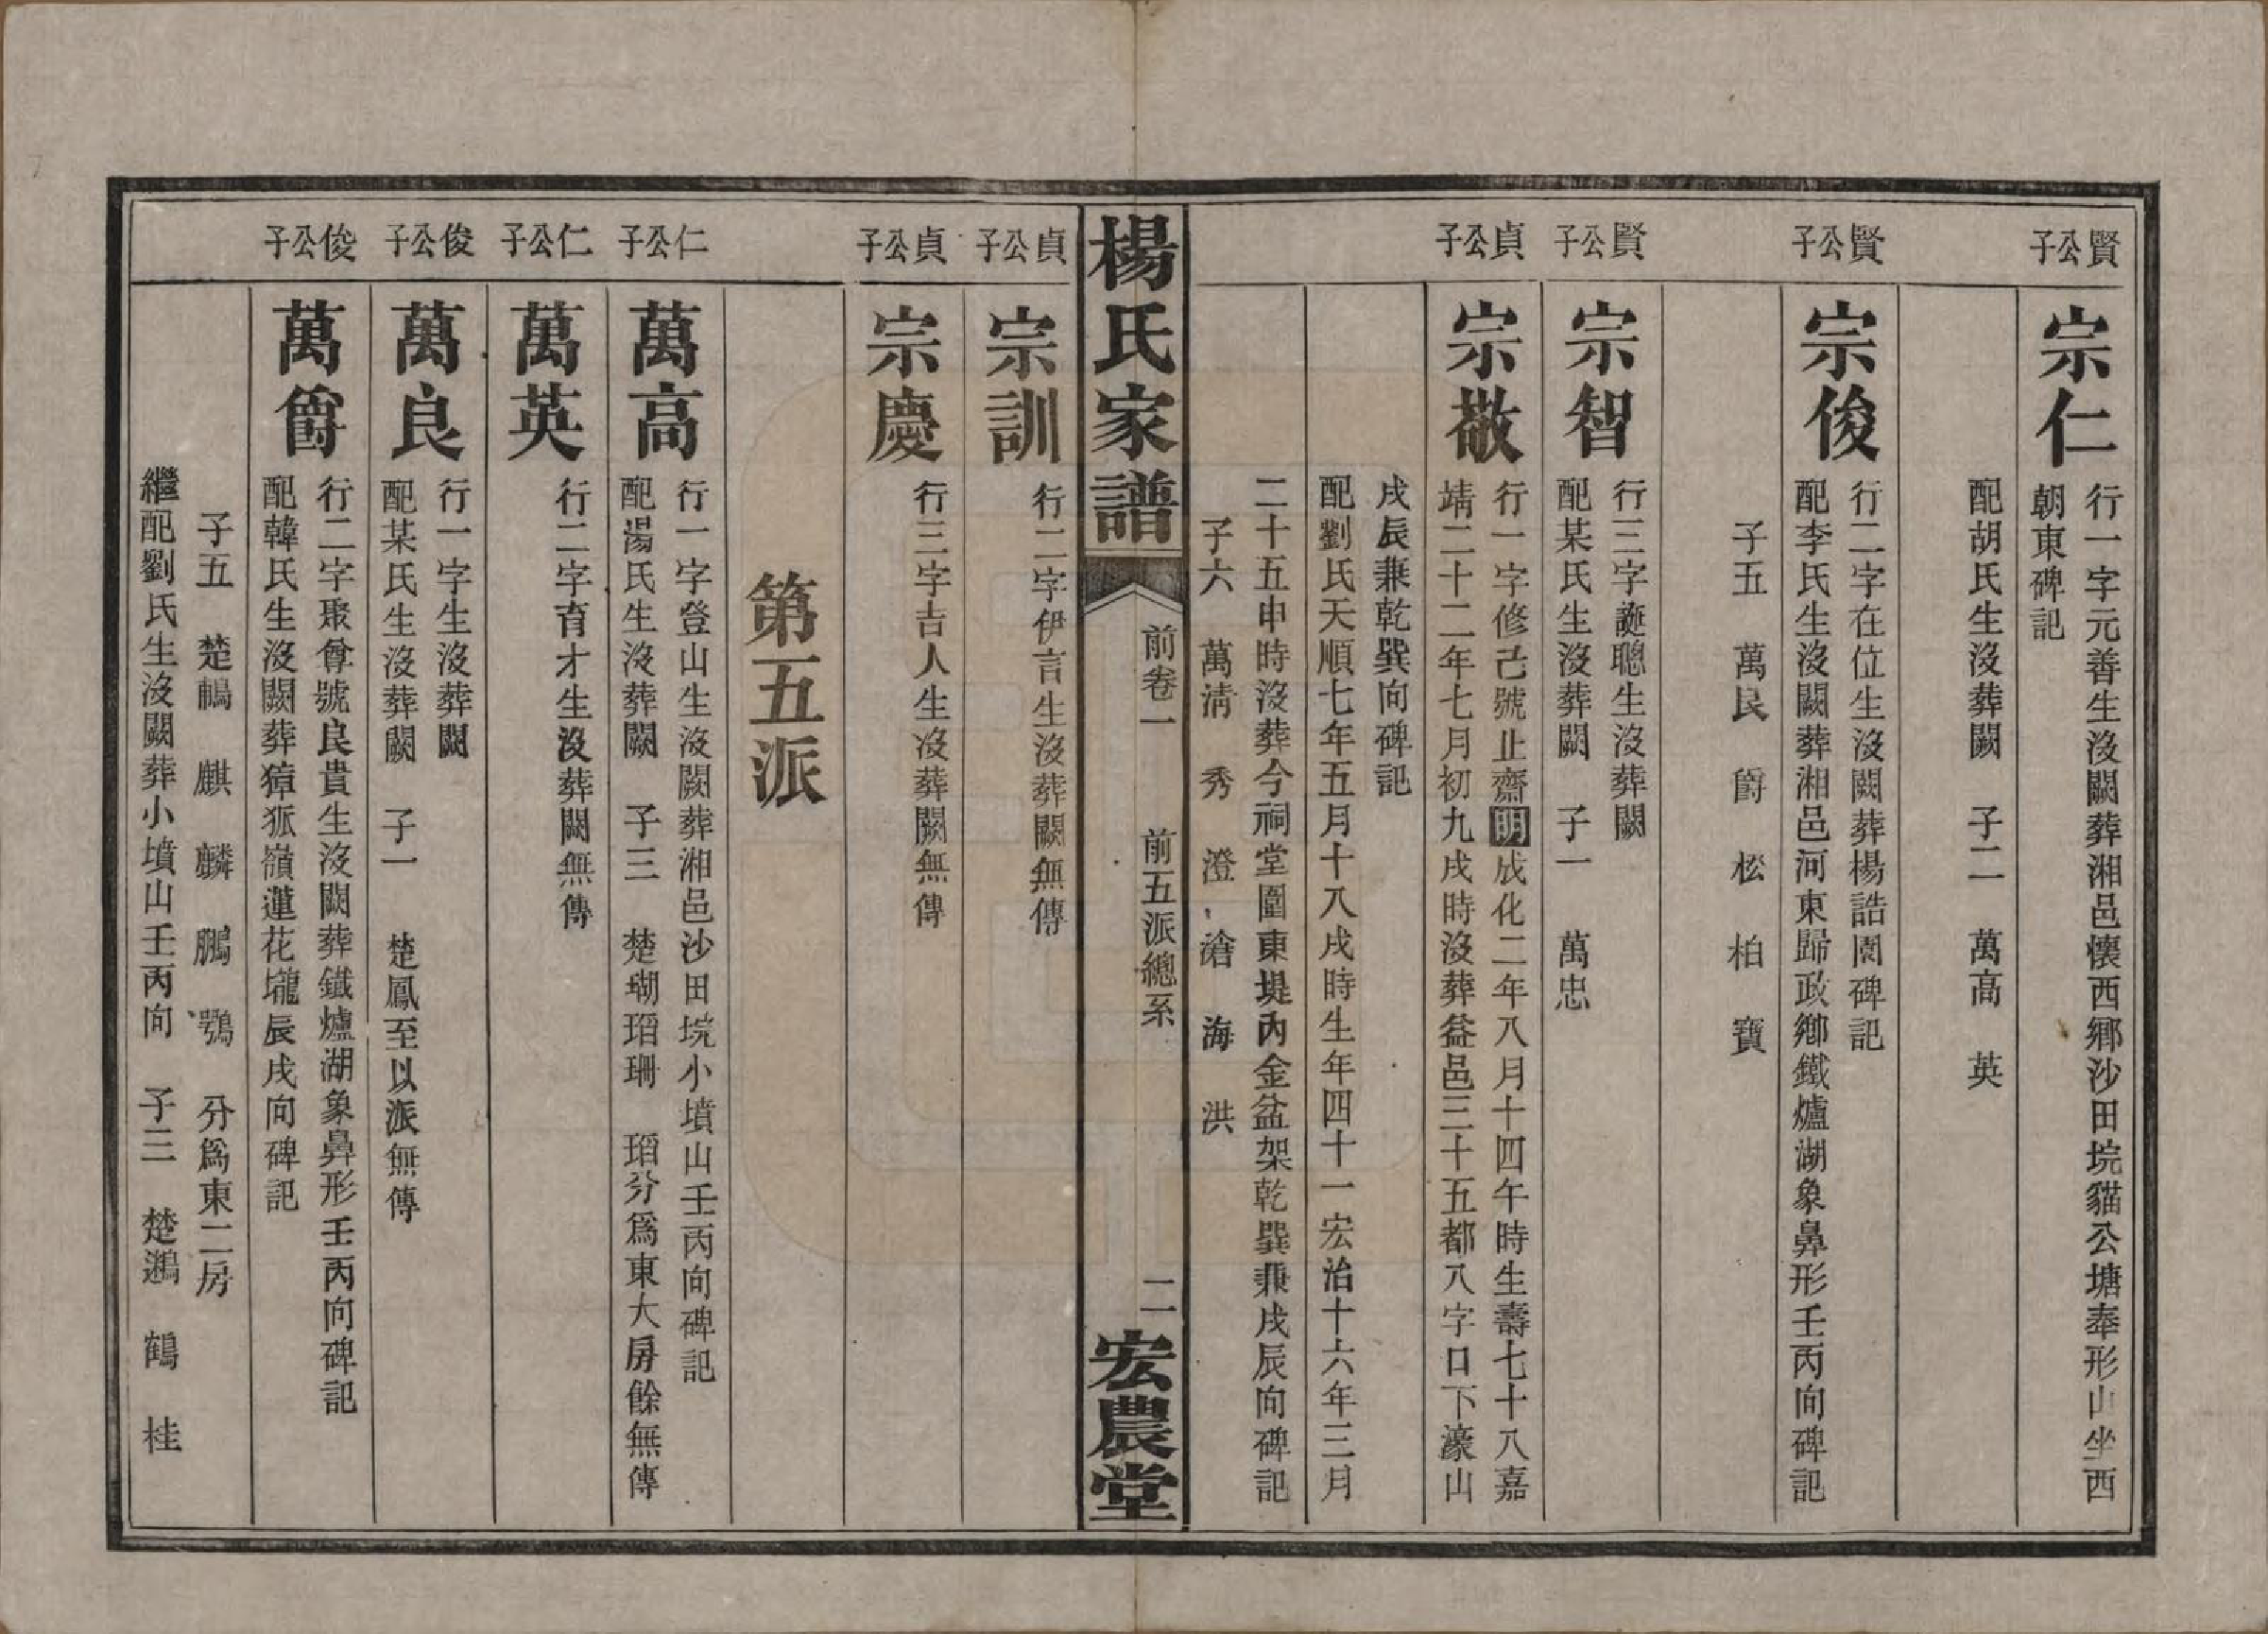 賢公子
宗仁
行一字元善生沒闕葬湘邑懷西鄉沙田垸貓公塘奉形山坐西
朝東碑記
配胡氏生沒葬闕　子二　萬高　英
賢公子
宗俊
行二字在位生沒闕葬楊誥園碑記
配李氏生沒闕葬湘邑河東歸政鄉鐵爐湖象鼻形壬丙向碑記
子五　萬良　爵　松　柏　寶
賢公子
宗智
行三字誕聰生沒葬闕
配某氏生沒葬闕　子一　萬忠
貞公子
宗敬
行一字修己號止齋明成化二年八月十四午時生壽七十八嘉
靖二十二年七月初九戌時沒葬益邑三十五都八字口下濠山
戌辰兼乾巽向碑記
配劉氏天順七年五月十八戌時生年四十一宏治十六年三月
二十五申時沒葬今祠堂圍東堤內金盆架乾巽兼戌辰向碑記
子六　萬淸　秀　澄　滄　海　洪
楊氏家譜
前卷一　前五派總系　二
宏農堂
貞公子
宗訓
行二字伊言生沒葬闕無傳
貞公子
宗慶
行三字吉人生沒葬闕無傳
第五派
仁公子
萬高
行一字登山生沒闕葬湘邑沙田垸小墳山壬丙向碑記
配湯氏生沒葬闕　子三　楚瑚瑫珊　瑫分爲東大房餘無傳
仁公子
萬英
行二字育才生沒葬闕無傳
俊公子
萬良
行一字生沒葬闕
配某氏生沒葬闕　子一　楚鳳至以派無傳
俊公子
萬爵
行二字聚尊號良貴生沒闕葬鐵爐湖象鼻形壬丙向碑記
配韓氏生沒闕葬獐狐嶺蓮花壠辰戌向碑記
子五　楚鵃　麒　麟　鵬　鶚　分爲東二房
繼配劉氏生沒闕葬小墳山壬丙向　子三　楚鶵　鶴　桂